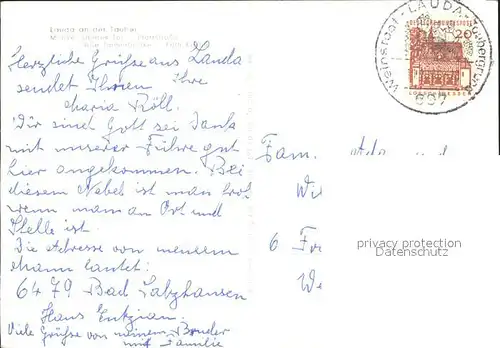 Lauda an der Tauber
WEINSTADT · LAUDA · Taubergrund
697
DEUTSCHE BUNDESPOST
20
Herzliche Grüsse aus Lauda
sendet Ihnen Ihre
Maria Röll.
Wir sind Gott sei Dank
mit unserer Fuhre gut
hier angekommen. Bei
diesem Nebel ist man froh
wenn man an Ort und
Stelle ist.
Die Adresse von meinem
Mann lautet:
6479 Bad Salzhausen
Hans
Viele Grüsse von meinem Bruder
mit Familie
Fam.
Wi
6 Fr
We
privacy protection
Datenschutz